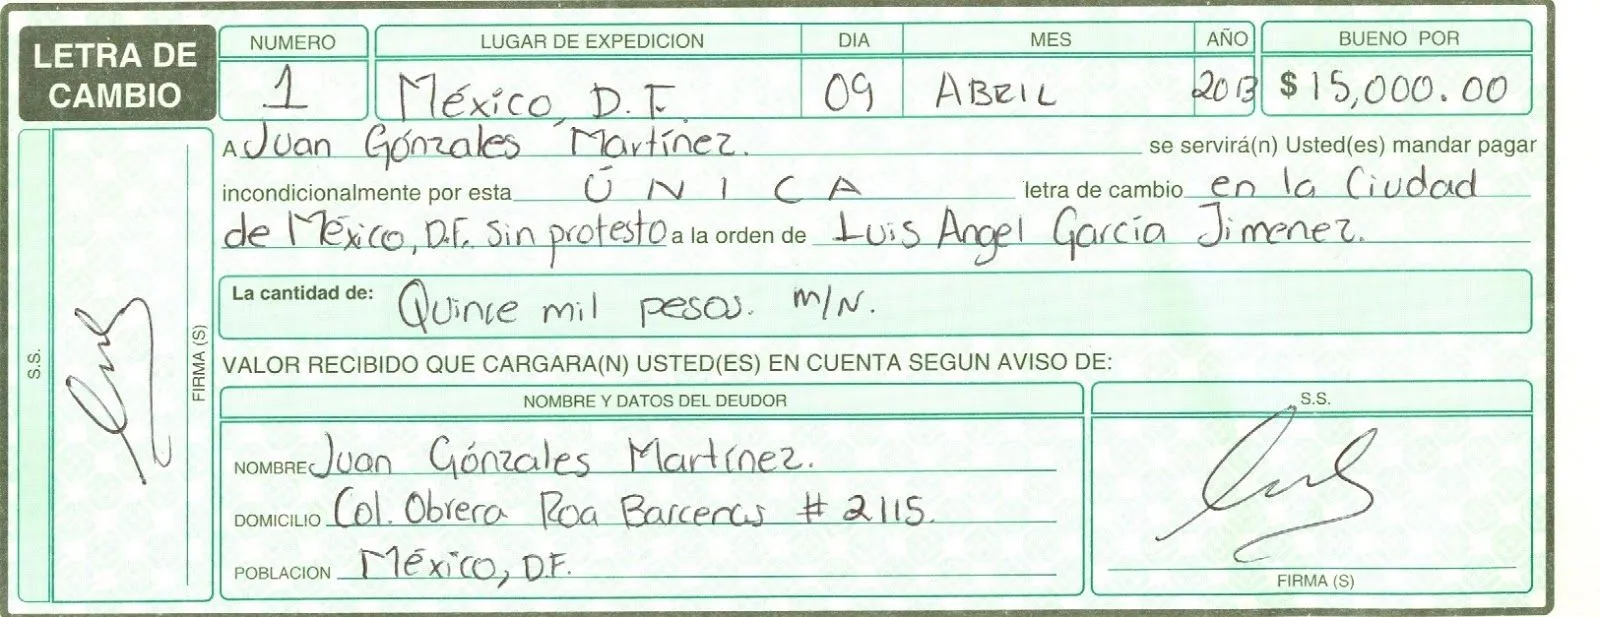 LETRA DE CAMBIO
NUMERO LUGAR DE EXPEDICION DIA MES AÑO BUENO POR
1 México, D.F. 09 ABRIL 2013 $ 15,000.00
A Juan Gónzales Martínez. se servirá(n) Usted(es) mandar pagar
incondicionalmente por esta ÚNICA letra de cambio en la Ciudad
de México, D.F. Sin protesto a la orden de Luis Angel García Jimenez.
La cantidad de: Quince mil pesos. m/N.
VALOR RECIBIDO QUE CARGARA(N) USTED(ES) EN CUENTA SEGUN AVISO DE:
NOMBRE Y DATOS DEL DEUDOR S.S.
NOMBRE Juan Gónzales Martínez.
DOMICILIO Col. Obrera Roa Barcenas # 2115.
POBLACION México, D.F.
FIRMA (S)
S.S.
FIRMA (S)